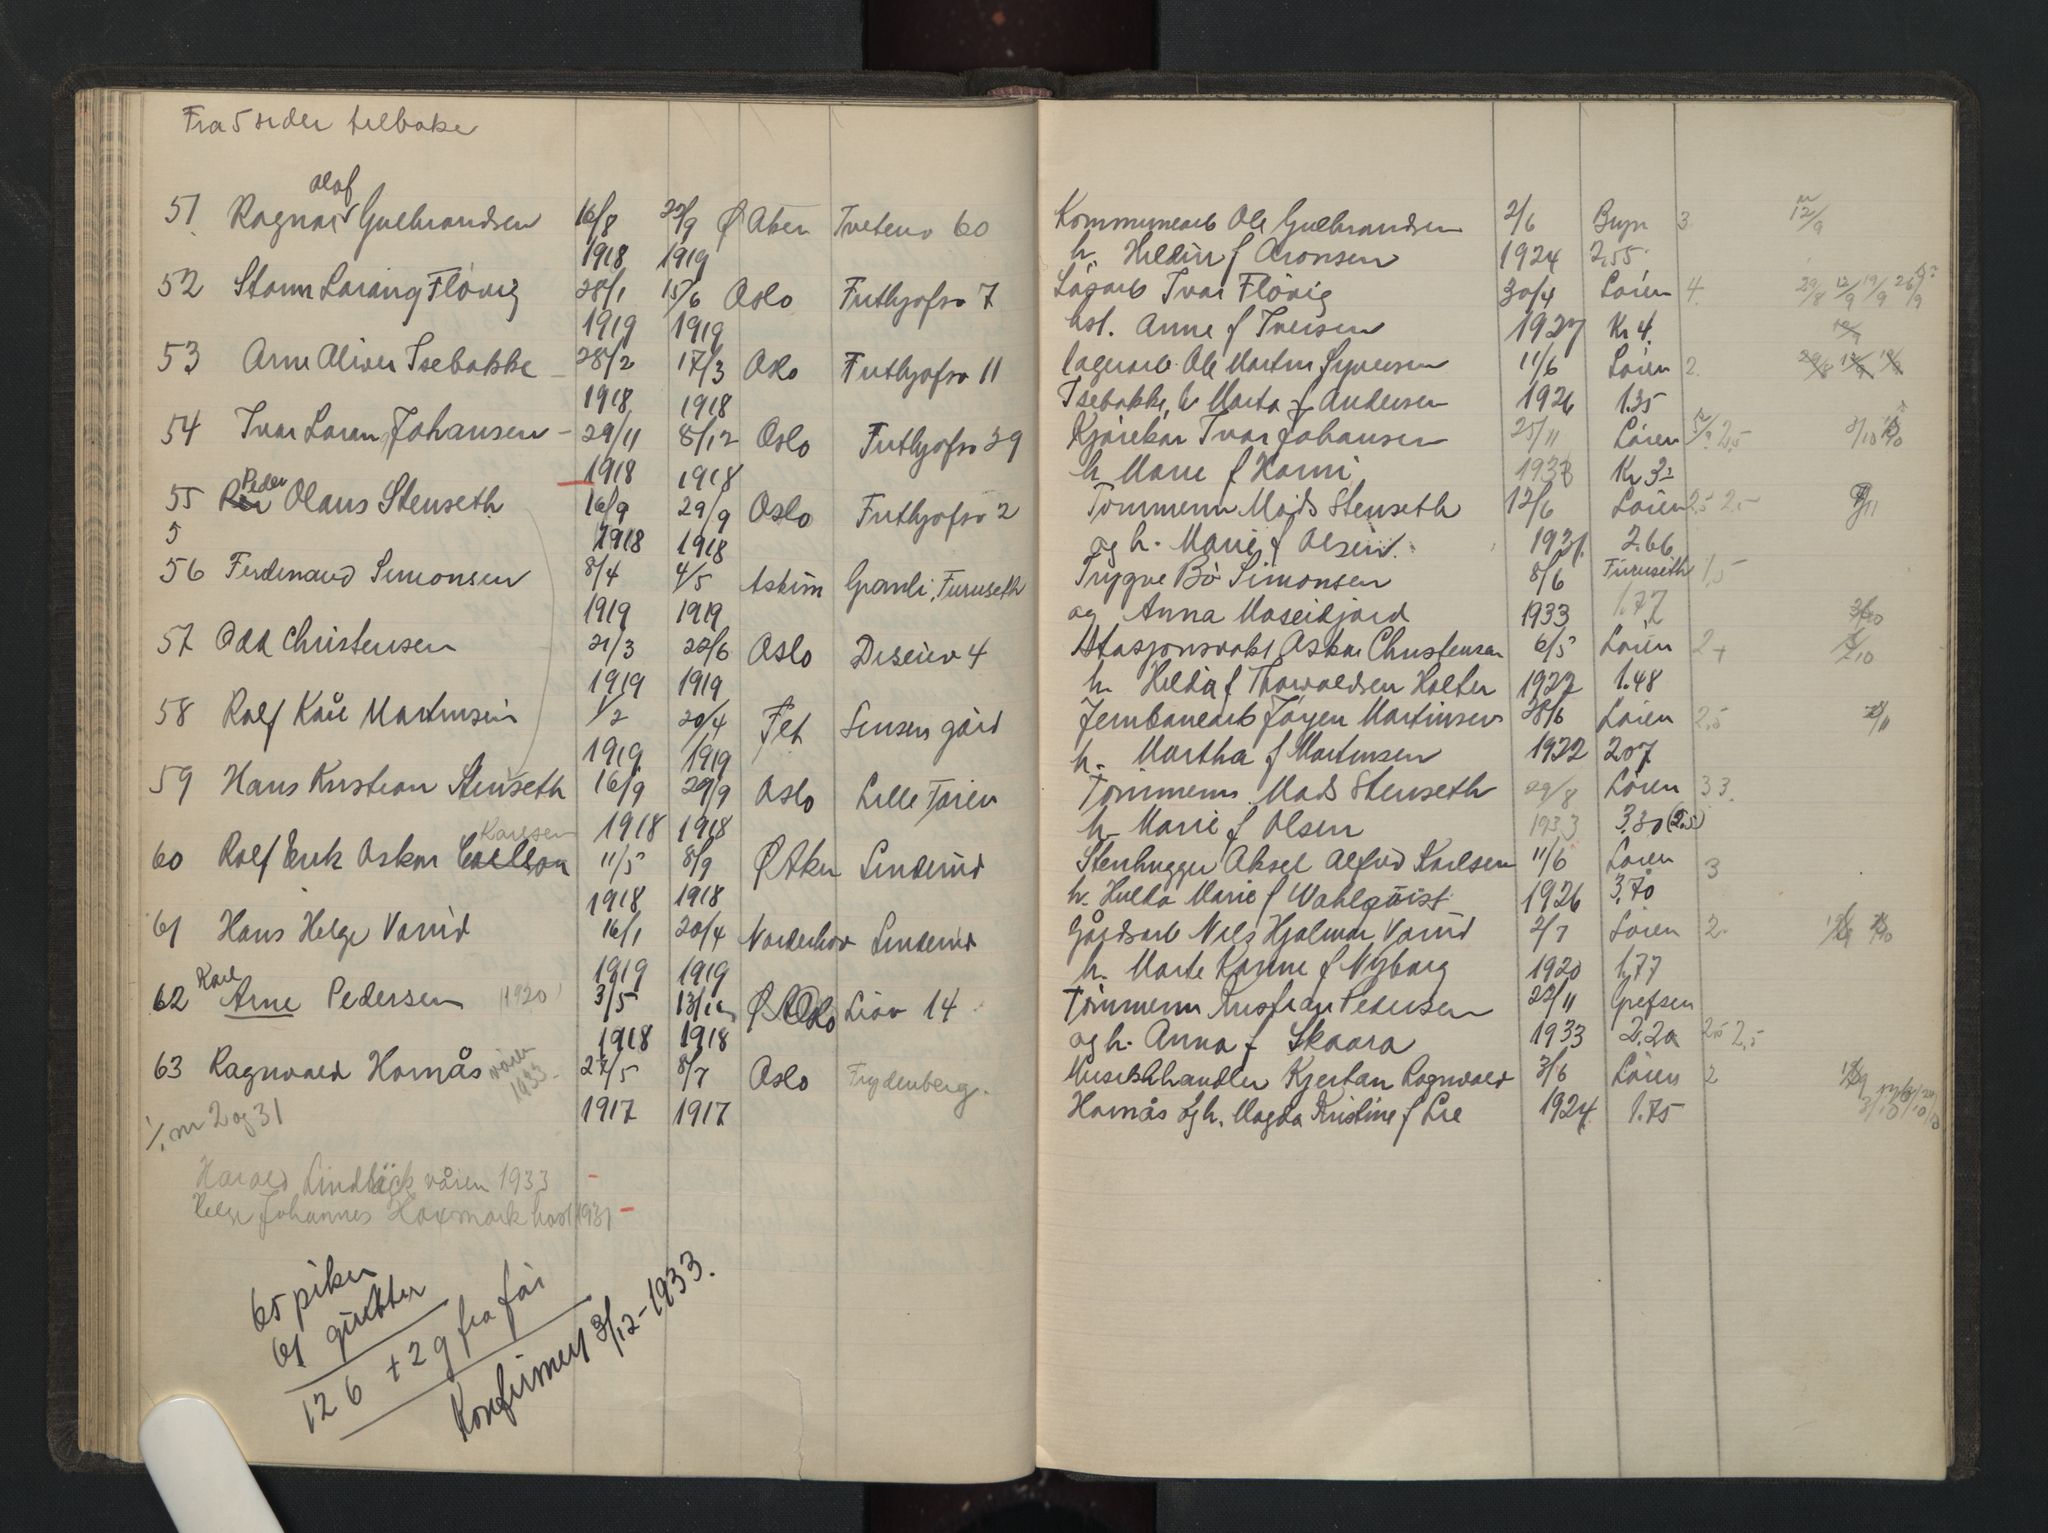 Fra 5 sider tilbake
Olof
51 Ragnar Gulbrandsen 16/8 22/9 Ø Aker Tvetenv 60 Kommunearb Ole Gulbrandsen 2/6 Bryn 3 12/9
1918 1919 h. Hildur f Aronsen 1924 2,55
52 Storm Loring Flövig 28/1 15/6 Oslo Frithjofsv 7 Ivar Flövig 30/4 Lören 4 29/8 12/9 19/9 26/9
1919 1919 hst. Anne f Iversen 1927 Kr 4.
53 Arne Oliver Isebakke 28/2 17/3 Oslo Frithjofsv 11 lagerarb Ole Martin Syversen 11/6 Lören 2.
1918 1918 Isebakke, h Marta f Andersen 1926 1.35
54 Ivar Loran Johansen 29/11 8/12 Oslo Frithjofsv 39 Kjörekar Ivar Johansen 25/11 Lören 2,5
1918 1918 h Marie f 1933 Kr 3-
55 Peder Olaus Stenseth 16/9 29/9 Oslo Frithjofsv 2 Tömmerm Mads Stenseth 12/6 Lören 2,5 2,5
5 1918 1918 og h. Marie f Olsen 1931 2.66
56 Ferdinand Simonsen 8/4 4/5 Askim Granli, Furuseth Trygve Bö Simonsen 8/6 Furuseth 1,5
1919 1919 og Anna Maseidjord 1933 1.77
57 Odd Christensen 21/3 22/6 Oslo Disenv 4 Stasjonsvakt Oskar Christensen 6/5 Lören 2
1919 1919 h. Hilda f Thorvaldsen Holter 1927 1.48
58 Rolf Kåre Martinsen 1/2 20/4 Fet Sinsen gård Jernbanearb Jörgen Martinsen 28/6 Lören 2,5
1919 1919 h. Martha f Martinsen 1922 2.07
59 Hans Kristian Stenseth 16/9 29/9 Oslo Lille Tøien Tömmerm. Mads Stenseth 29/8 Lören 3 3.
1918 1918 h Marie f Olsen 1933 3.30 (2.5)
Karlsen
60 Rolf Erik Oskar Carlson 11/5 8/9 Ø Aker Linderud Stenhugger Aksel Alfred Karlsen 11/6 Lören 3
1918 1918 h. Hulda Marie f Wahlqvist 1926 3,70
61 Hans Helge Varud 16/1 20/4 Norderhov Linderud Gårdsarb Nils Hjalmar Varud 2/7 Lören 2.
1919 1919 h. Marte Karine f Nyborg 1920 1,77
Karl
62 Arne Pedersen (1920) 3/5 13/10 Oslo Liav 14 Tömmerm Kristian Pedersen 22/11 Grefsen
1918 1918 og h. Anna f Skaara 1933 2.20 2,5 2,5
63 Ragnvald Hornås våren 27/5 8/7 Oslo Frydenberg. Musikkhandler Kjertan Ragnvald 3/6 Lören 2
1933 1917 1917 Hornås og h. Magda Kristine f Lie 1924 1.75
nr 2 og 31
Harald Lindbäck våren 1933
Helge Johannes Haxmark høst 1931
65 piker
61 gutter
126 + 29 fra før
Konfirmert 3/12-1933.